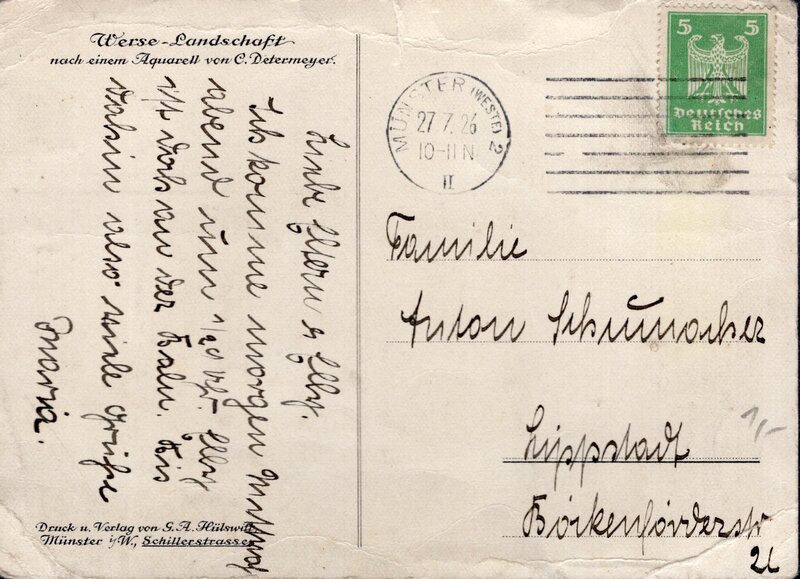 Werse-Landschaft
nach einem Aquarell von C. Determeyer.
Liebe Eltern Elly.
Ich komme morgen Mittwoch
abend um Uhr. Elly
ist doch an der Bahn. Bis
dahin also viele Grüße
Maria.
Druck u. Verlag von G. A. Hülswitt
Münster i/W., Schillerstrasse
MÜNSTER (WESTF) 2
27.7.26
10-11 N
II
5 5
Deutsches
Reich
Familie
Anton Schumacher
Lippstadt
Böckenförderstr
21
1,-